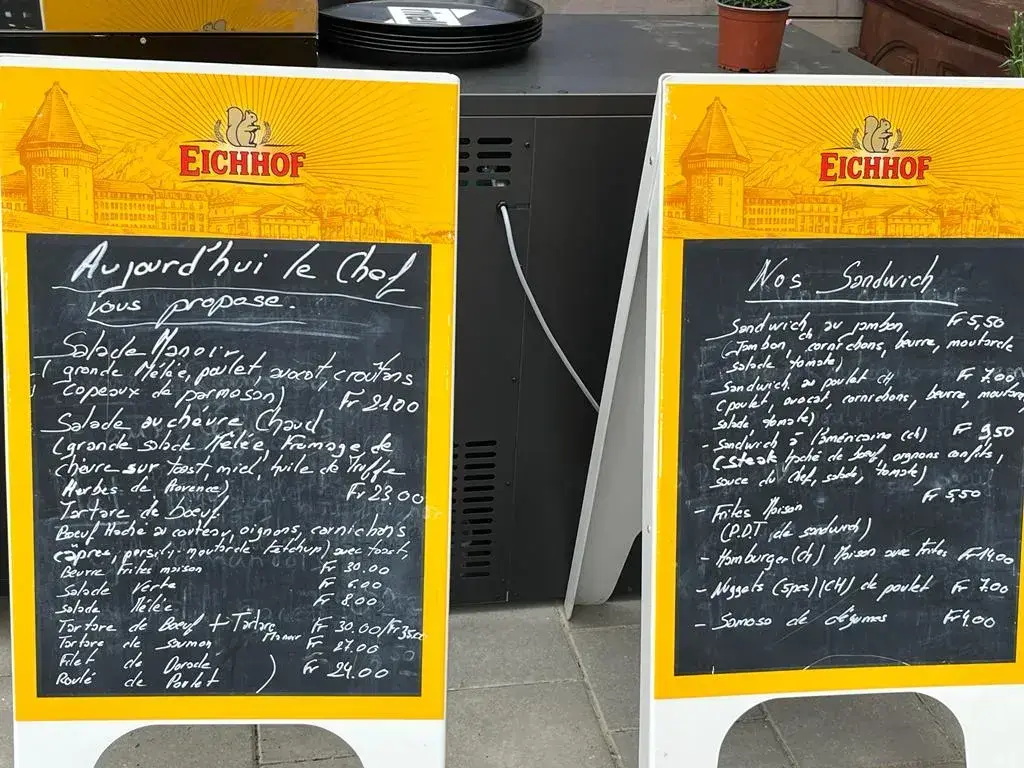 EICHHOF
Aujourd'hui le Chef
vous propose.
Salade Manoir
(grande Mêlée, poulet, avocat, croûtons
copeaux de parmosan) Fr 21.00
Salade au chèvre Chaud
(grande Mêlée, fromage de
chèvre sur toast, miel, huile de truffe
Herbes de Provence) Fr 23.00
Tartare de bœuf
Bœuf Haché au couteau, oignons, cornichons
câpres, persil, moutarde ketchup) avec toast,
Beurre Frites maison Fr 30.00
Salade Verte Fr 6.00
Salade Mêlée Fr 8.00
Tartare de Bœuf + Tartare Manoir Fr 30.00/Fr 35.00
Tartare de saumon Fr 27.00
Filet de Dorade
Roulé de Poulet ) Fr 24.00
EICHHOF
Nos Sandwich
Sandwich au jambon Fr 5,50
(Jambon ch cornichons, beurre, moutarde
salade, tomate)
Sandwich au poulet CH Fr 7.00
(poulet, avocat, cornichons, beurre, moutarde
salade, tomate)
- Sandwich à l'américaine (ch) Fr 9,50
(steak haché de bœuf, oignons confits,
sauce du chef, salade, tomate)
- Frites Maison Fr 5,50
(P.D.T de sandwich)
- Hamburger (ch) Maison avec frites Fr 14.00
- Nuggets (5pcs) (CH) de poulet Fr 7.00
- Samosa de légumes Fr 4,00